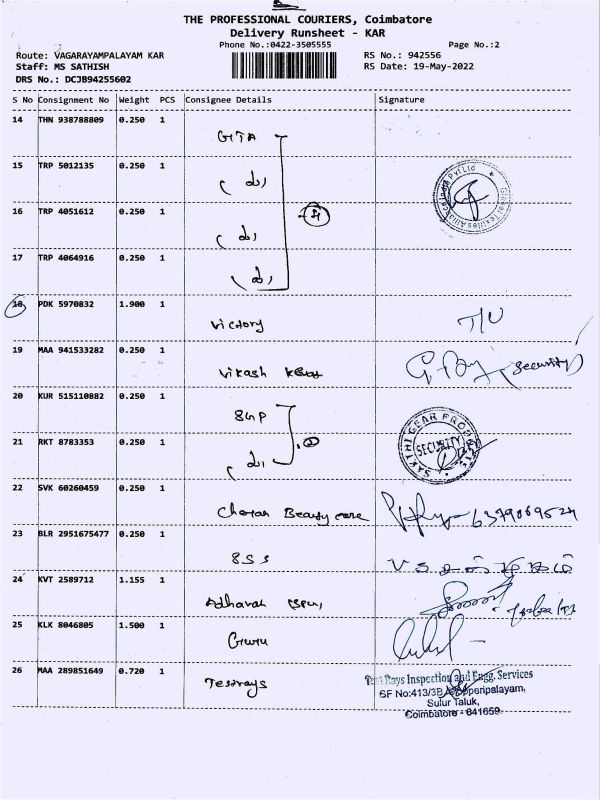 THE PROFESSIONAL COURIERS, Coimbatore
Delivery Runsheet - KAR
Phone No.:0422-3505555 Page No.:2
Route: VAGARAYAMPALAYAM KAR RS No.: 942556
Staff: MS SATHISH RS Date: 19-May-2022
DRS No.: DCJB94255602
S No Consignment No Weight PCS Consignee Details Signature
14 THN 938788809 0.250 1
GITA
15 TRP 5012135 0.250 1
16 TRP 4051612 0.250 1
17 TRP 4064916 0.250 1
18 PDK 5970832 1.900 1
Victory
19 MAA 941533282 0.250 1
Vikash (Security)
20 KUR 515110882 0.250 1
SGP
21 RKT 8783353 0.250 1
SECURITY
22 SVK 60260459 0.250 1
Beauty care
23 BLR 2951675477 0.250 1
SSS
24 KVT 2589712 1.155 1
Adharah
25 KLK 8046805 1.500 1
Guru
26 MAA 289851649 0.720 1
Testrays
Test Rays Inspection and Engg. Services
SF No:413/3B
Sulur Taluk,
Coimbatore - 641659